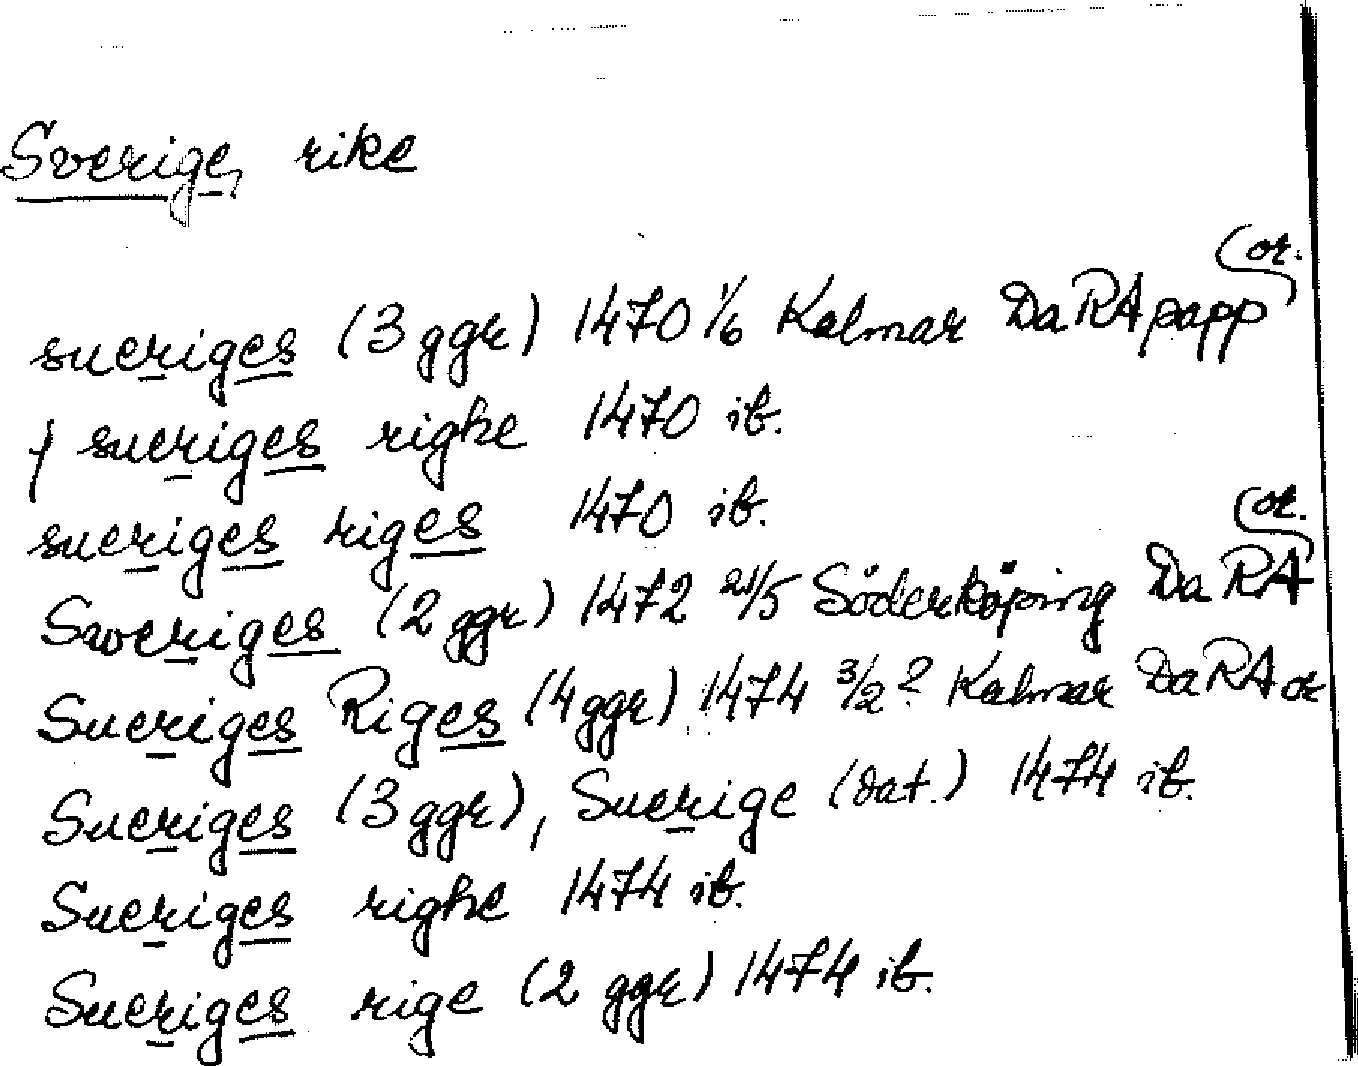 Sverige, rike
sueriges (3 ggr) 1470 1/6 Kalmar DaRApapp (or.
j sueriges righe 1470 ib.
sueriges riges 1470 ib.
Sweriges (2 ggr) 1472 21/5 Söderköping DaRA (or.
Sueriges Riges (4 ggr) 1474 3/2? Kalmar DaRA or
Sueriges (3 ggr), Suerige (dat.) 1474 ib.
Sueriges righe 1474 ib.
Sueriges rige (2 ggr) 1474 ib.